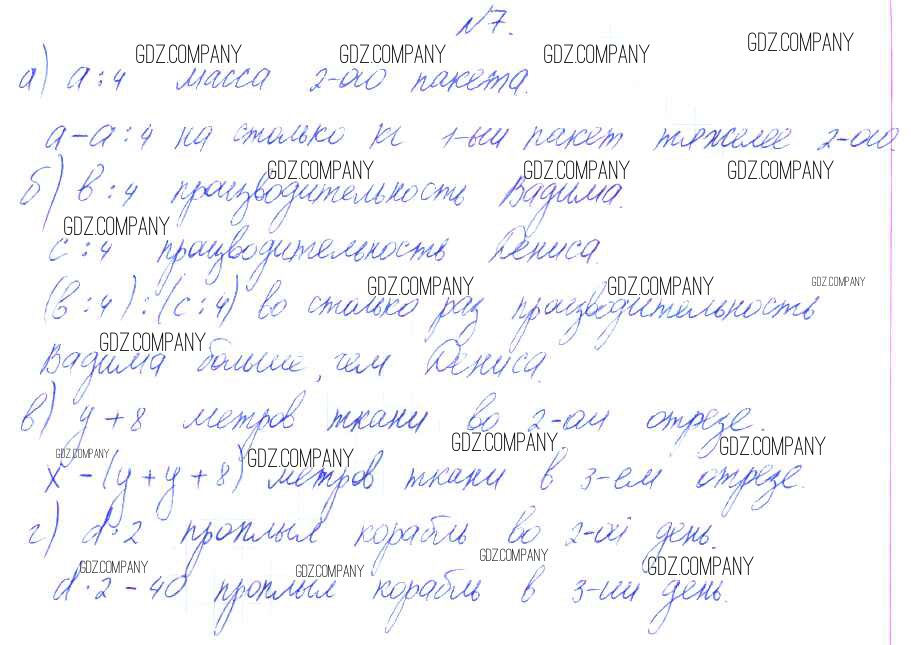 №7.
GDZ.COMPANY GDZ.COMPANY GDZ.COMPANY GDZ.COMPANY
а) a : 4 масса 2-ого пакета.
a - a : 4 на столько кг 1-ый пакет тяжелее 2-ого.
GDZ.COMPANY GDZ.COMPANY GDZ.COMPANY
б) в : 4 производительность Вадима.
GDZ.COMPANY
с : 4 производительность Дениса.
GDZ.COMPANY GDZ.COMPANY GDZ.COMPANY
(в : 4) : (с : 4) во столько раз производительность
GDZ.COMPANY
Вадима больше, чем Дениса.
в) y + 8 метров ткани во 2-ом отрезе.
GDZ.COMPANY GDZ.COMPANY GDZ.COMPANY GDZ.COMPANY
x - (y + y + 8) метров ткани в 3-ем отрезе.
г) d · 2 проплыл корабль во 2-ой день.
GDZ.COMPANY GDZ.COMPANY GDZ.COMPANY GDZ.COMPANY
d · 2 - 40 проплыл корабль в 3-ий день.